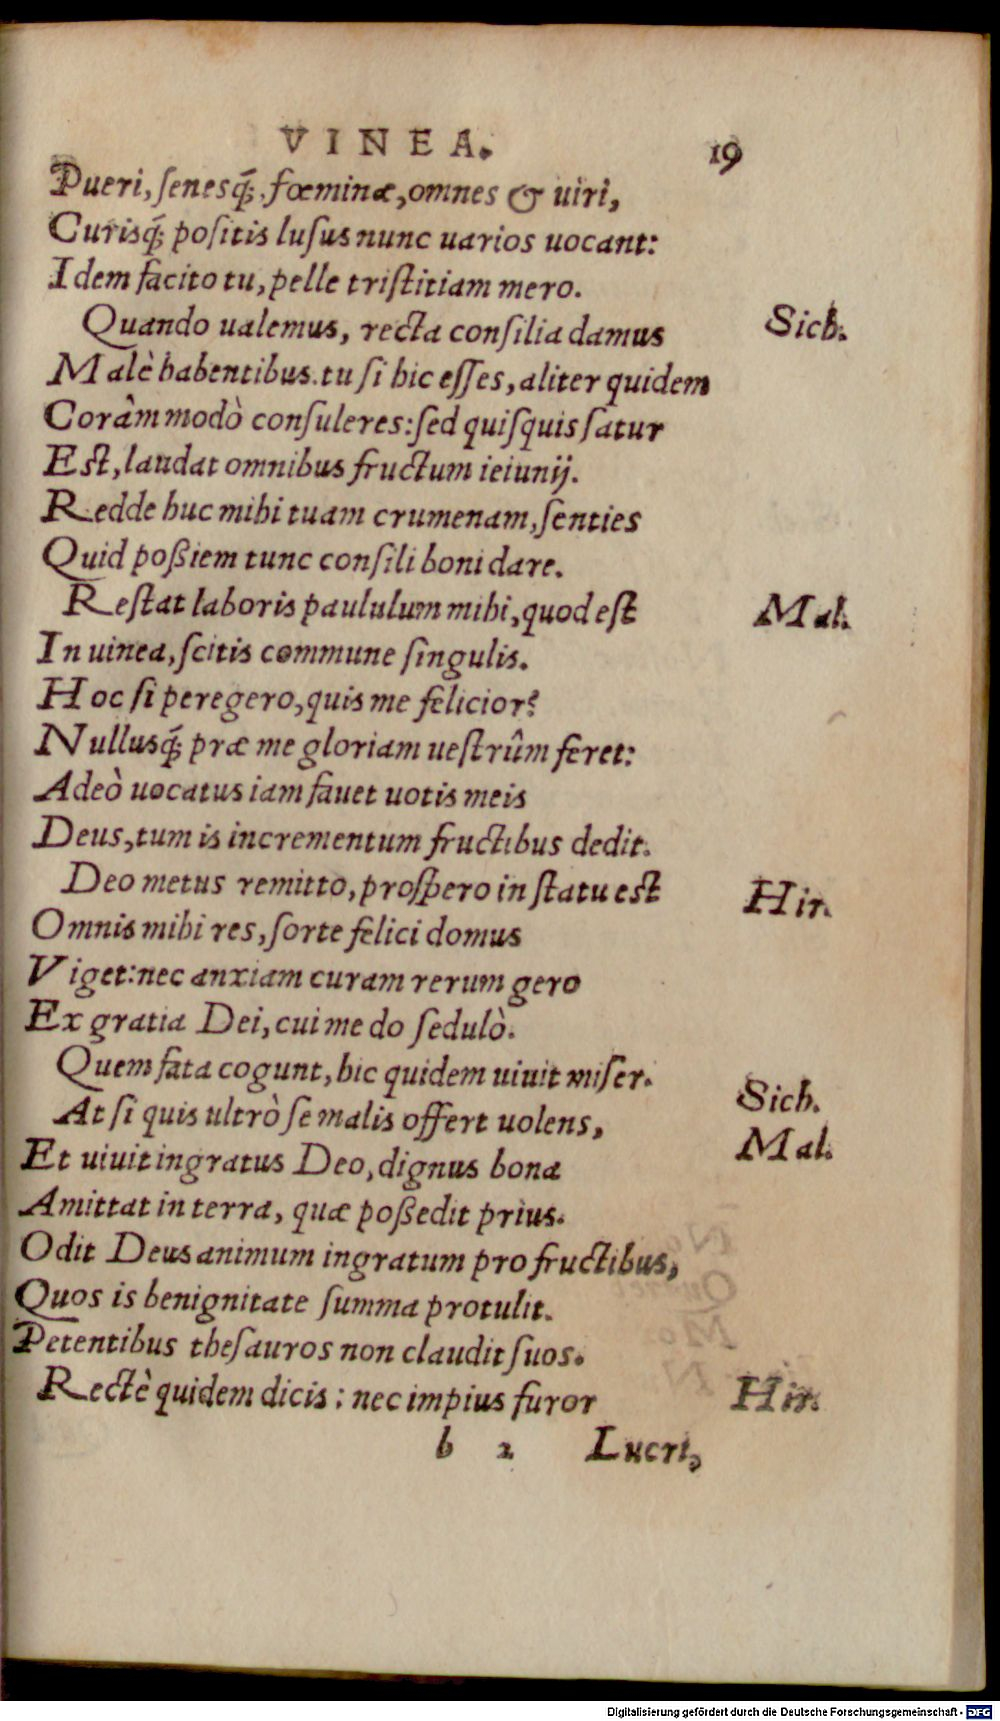 VINEA. 19
Pueri, ſenesq́;, fœminæ, omnes & uiri,
Curisq́; poſitis luſus nunc uarios uocant:
Idem facito tu, pelle triſtitiam mero.
Quando ualemus, recta conſilia damus Sich.
Malè habentibus. tu ſi hic eſſes, aliter quidem
Corâm modò conſuleres: ſed quiſquis ſatur
Eſt, laudat omnibus fructum ieiunij.
Redde huc mihi tuam crumenam, ſenties
Quid poßiem tunc conſili boni dare.
Reſtat laboris paululum mihi, quod eſt Mal.
In uinea, ſcitis commune ſingulis.
Hoc ſi peregero, quis me felicior?
Nullusq́; præ me gloriam ueſtrûm feret:
Adeò uocatus iam fauet uotis meis
Deus, tum is incrementum fructibus dedit.
Deo metus remitto, proſpero in ſtatu eſt Hir.
Omnis mihi res, ſorte felici domus
Viget: nec anxiam curam rerum gero
Ex gratia Dei, cui me do ſedulò.
Quem fata cogunt, hic quidem uiuit miſer. Sich.
At ſi quis ultrò ſe malis offert uolens, Mal.
Et uiuit ingratus Deo, dignus bona
Amittat in terra, quæ poßedit prius.
Odit Deus animum ingratum pro fructibus,
Quos is benignitate ſumma protulit.
Petentibus theſauros non claudit ſuos.
Rectè quidem dicis: nec impius furor Hir.
b 2 Lucri,
Digitalisierung gefördert durch die Deutsche Forschungsgemeinschaft - DFG